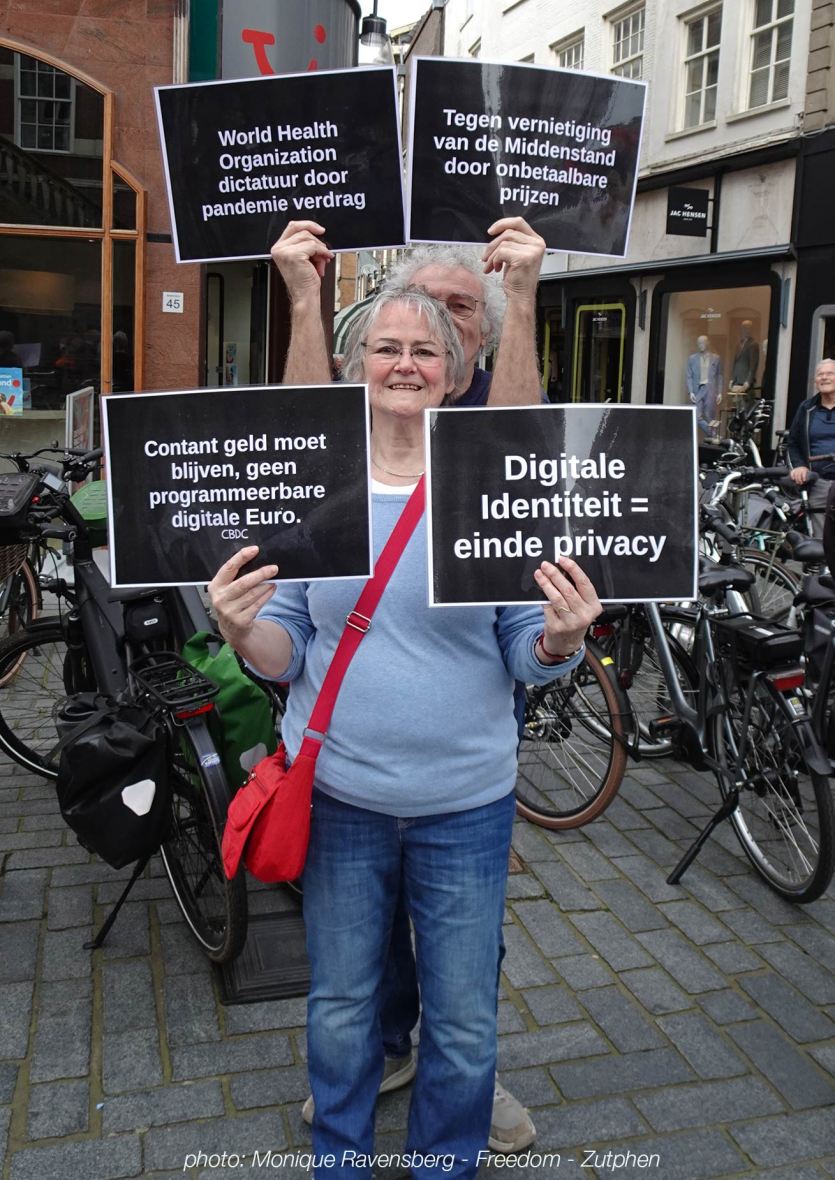 World Health
Organization
dictatuur door
pandemie verdrag
Tegen vernietiging
van de Middenstand
door onbetaalbare
prijzen
JAC HENSEN
45
Contant geld moet
blijven, geen
programmeerbare
digitale Euro.
CBDC
Digitale
Identiteit =
einde privacy
photo: Monique Ravensberg - Freedom - Zutphen